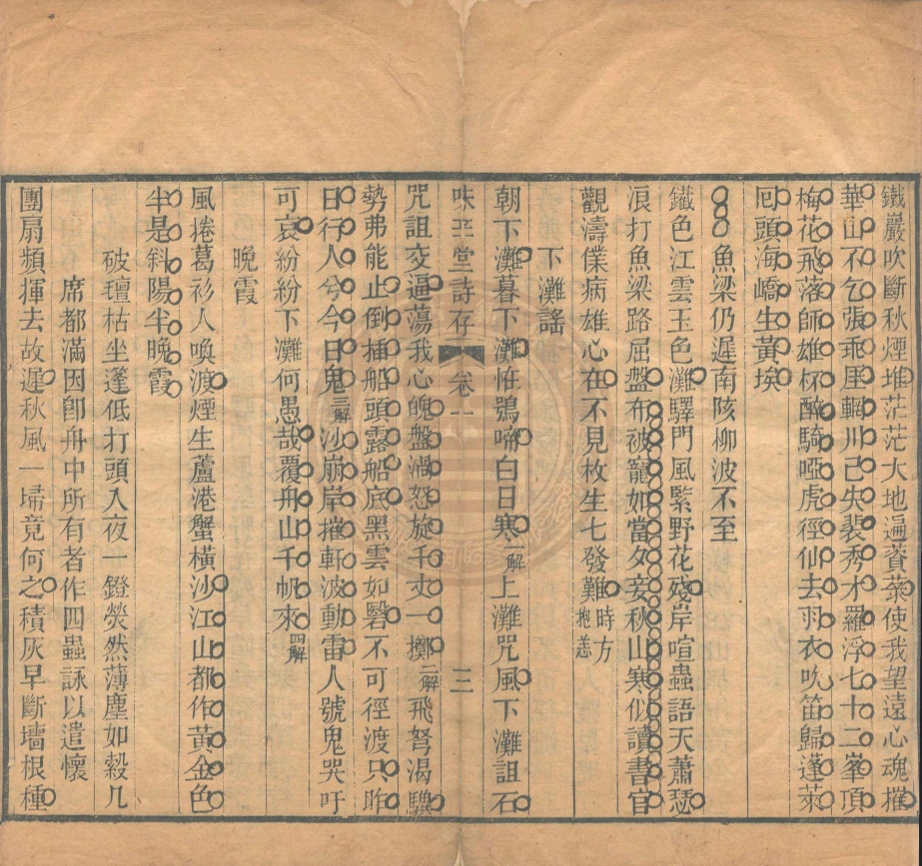 鐵巖吹斷秋煙堆茫茫大地遍蒼萊使我望遠心魂摧
華山不乞張乖厓輞川已失裴秀才羅浮七十二峯頂
梅花飛落師雄杯醉騎啞虎徑仙去羽衣吹笛歸蓬萊
囘頭海嶠生黃埃
魚梁仍遲南陔柳波不至
鐵色江雲玉色灘驛門風緊野花殘岸喧蟲語天蕭瑟
浪打魚梁路屈盤布被龍如當夕妾秋山寒似讀書官
觀濤僕病雄心在不見枚生七發難時方抱恙
下灘謠
朝下灘暮下灘恠鴞啼白日寒一解上灘咒風下灘詛石
味 堂詩存 卷一 三
咒詛交逼蕩我心魄盤渦怒旋千丈一擲二解飛弩渴驥
勢弗能止倒插船頭露船底黑雲如翳不可徑渡只昨
日行人兮今日鬼三解沙崩岸摧軒波動雷人號鬼哭吁
可哀紛紛下灘何愚哉覆舟山千帆來四解
晚霞
風捲葛衫人喚渡煙生蘆港蟹橫沙江山都作黃金色
半是斜陽半晚霞
破 枯坐蓬低打頭入夜一鐙熒然薄塵如縠几
席都滿因卽舟中所有者作四蟲詠以遣懷
團扇頻揮去故遲秋風一埽竟何之積灰早斷墻根種